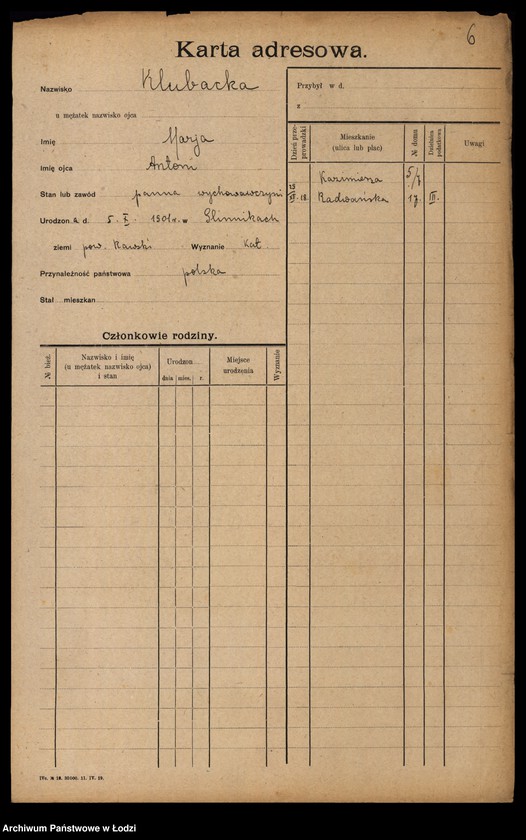 6
Karta adresowa.
Nazwisko Klubacka
u mężatek nazwisko ojca
Imię Marja
Imię ojca Antoni
Stan lub zawód panna wychowawczyni
Urodzon. A. d. 5. X. 1901 r. w Glinnikach
ziemi pow. Rawski Wyznanie Kat.
Przynależność państwowa polska
Stał. mieszkan.
Członkowie rodziny.
№ bież.
Nazwisko i imię
(u mężatek nazwisko ojca)
i stan
Urodzon
dnia mies. r.
Miejsce
urodzenia
Wyznanie
Przybył w d.
z
Dzień prze-
prowadzki
Mieszkanie
(ulica lub plac)
№ domu
Dzielnica
podatkowa
Uwagi
Kazimierza 5/7
Radwańska 17. III.
IVa. № 18. 35000. 11. IV. 19.
Archiwum Państwowe w Łodzi